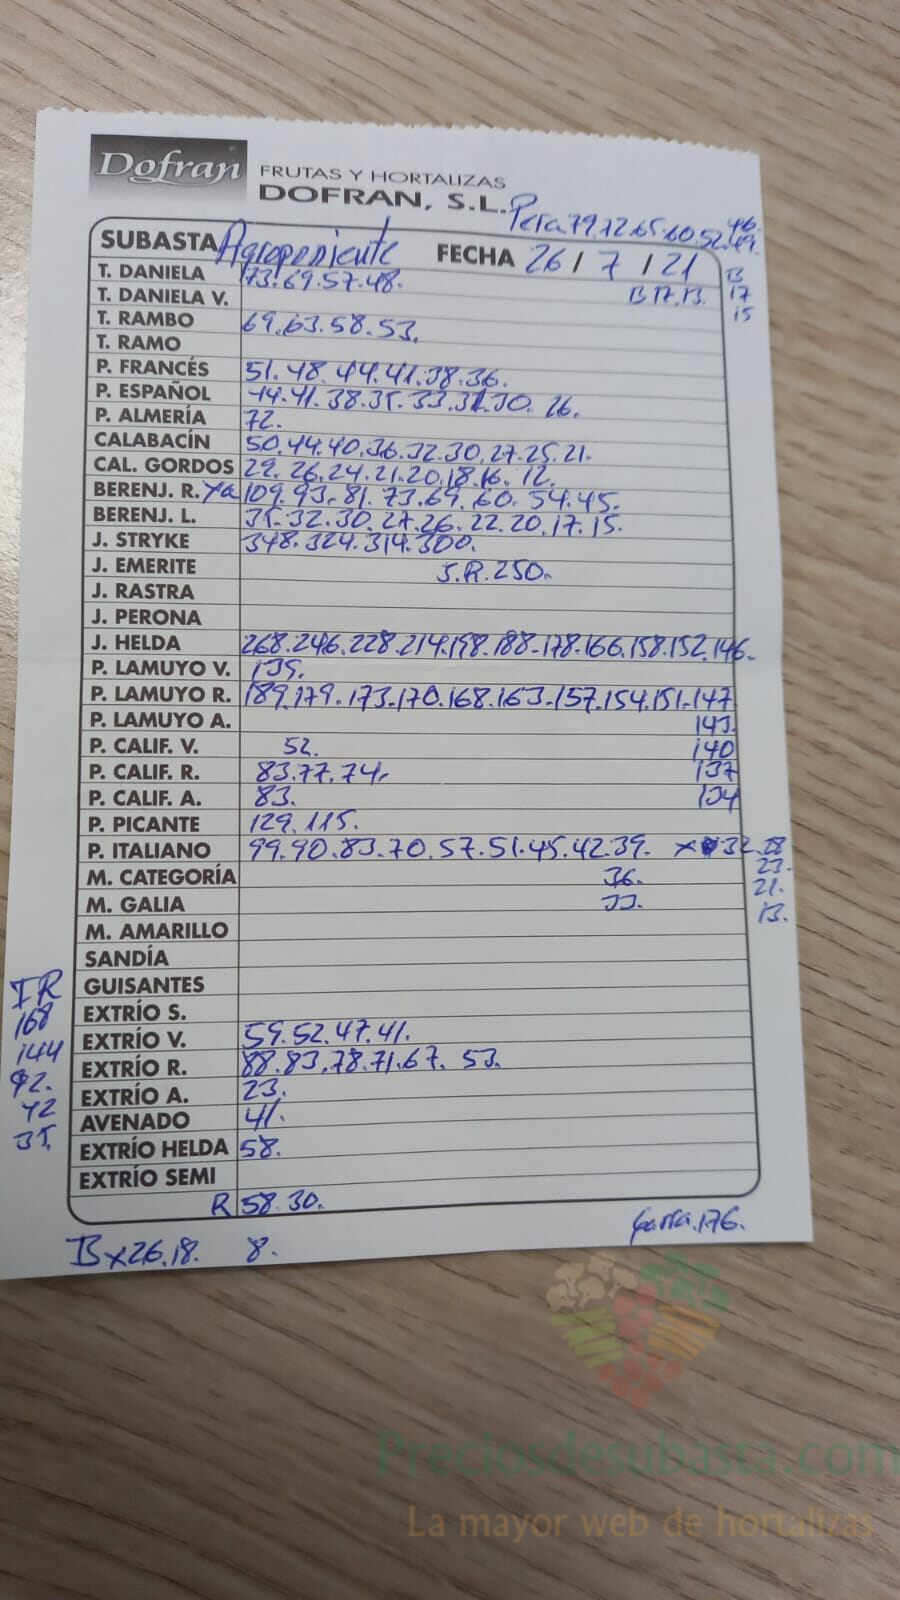 Dofran
FRUTAS Y HORTALIZAS
DOFRAN, S.L.
Pera 79.72.65.60.52.
46.
49.
SUBASTA Agroponiente FECHA 26/7/21
B
17
15
T. DANIELA 73.69.57.48.
T. DANIELA V. B 17.13.
T. RAMBO 69.63.58.53.
T. RAMO
P. FRANCÉS 51.48.44.41.38.36.
P. ESPAÑOL 44.41.38.35.33.32.30. 26.
P. ALMERÍA 72.
CALABACÍN 50.44.40.36.32.30.27.25.21.
CAL. GORDOS 29.26.24.21.20.18.16. 12.
BERENJ. R. Ya 109.93.81.73.69.60.54.45.
BERENJ. L. 35.32.30.27.26.22.20.17.15.
J. STRYKE 348.324.314.300.
J. EMERITE S.R.250.
J. RASTRA
J. PERONA
J. HELDA 268.246.228.214.198.188.178.166.158.152.146.
P. LAMUYO V. 135.
P. LAMUYO R. 189.179.173.170.168.163.157.154.151.147
P. LAMUYO A. 143.
P. CALIF. V. 52. 140
P. CALIF. R. 83.77.74. 137
P. CALIF. A. 83. 134
P. PICANTE 129.115.
P. ITALIANO 99.90.83.70.57.51.45.42.39. x 32.28
23.
M. CATEGORÍA 36.
21.
M. GALIA 33.
13.
M. AMARILLO
SANDÍA
GUISANTES
IR
168
144
92.
42
35.
EXTRÍO S.
EXTRÍO V. 59.52.47.41.
EXTRÍO R. 88.83.78.71.67. 53.
EXTRÍO A. 23.
AVENADO 41.
EXTRÍO HELDA 58.
EXTRÍO SEMI
R 58.30.
Garra.176.
B x 26.18. 8.
Preciosdesubasta.com
La mayor web de hortalizas